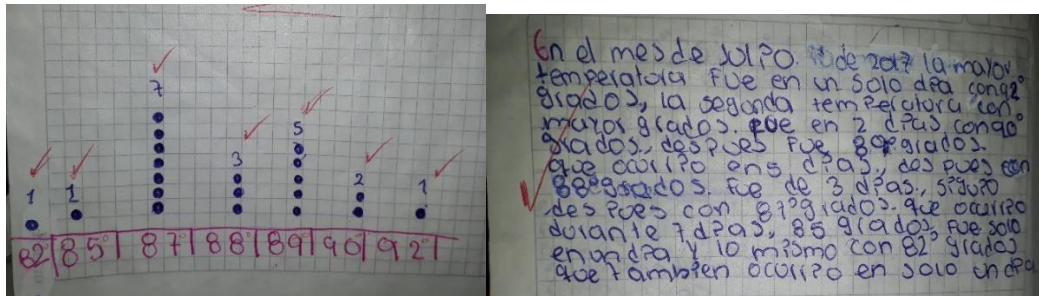 7
5
3
2
1 1 1
82° 85° 87° 88° 89° 90° 92°
En el mes de julio. de 2017 la mayor
temperatura fue en un solo dia con 92°
grados, la segunda temperatura con
mayor grados. fue en 2 dias con 90°
grados, despues fue 89° grados
que ocurrio en 5 dias, despues con
88° grados. fue de 3 dias, siguio
despues con 87° grados. que ocurrio
durante 7 dias, 85 grados, fue solo
en un dia y lo mismo con 82° grados
que tambien ocurrio en solo un dia